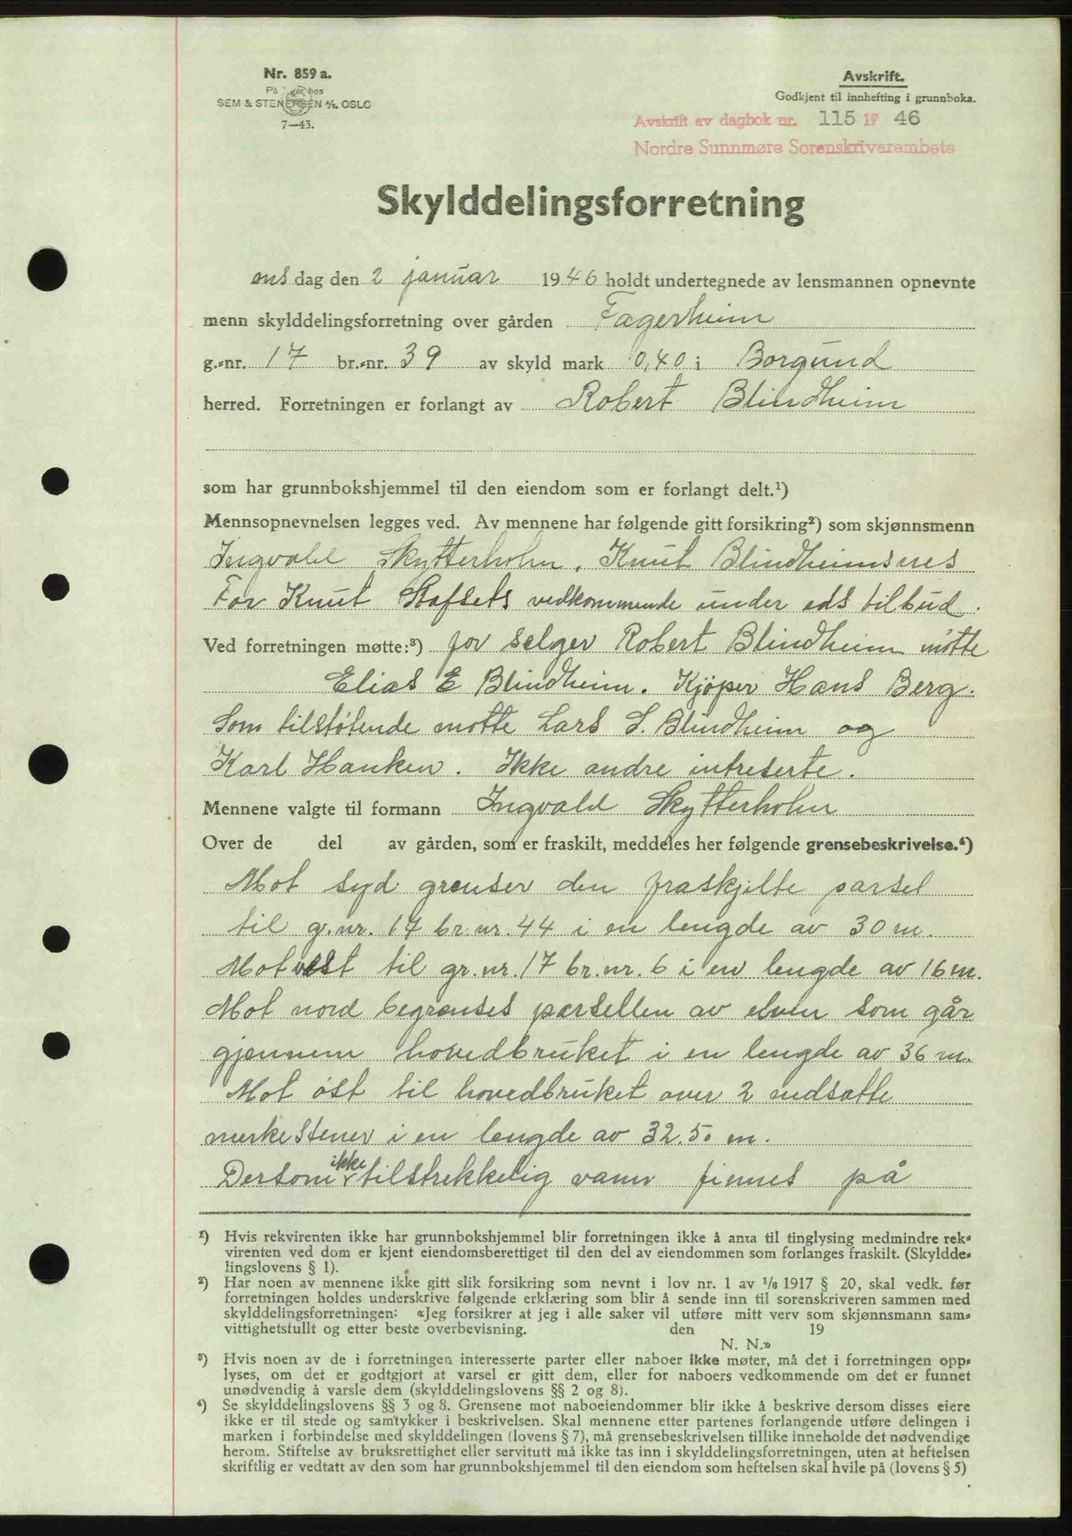 Nr. 859 a.
På lager hos
SEM & STENERSEN A/S, OSLO
7—43.
Avskrift.
Godkjent til innhefting i grunnboka.
Avskrift av dagbok nr. 115 19 46
Nordre Sunnmøre Sorenskrivarembete
Skylddelingsforretning
ons dag den 2 januar 1946 holdt undertegnede av lensmannen opnevnte
menn skylddelingsforretning over gården Fagerheim
g.-nr. 17 br.-nr. 39 av skyld mark 0,40 i Borgund
herred. Forretningen er forlangt av Robert Blindheim
som har grunnbokshjemmel til den eiendom som er forlangt delt.¹)
Mennsopnevnelsen legges ved. Av mennene har følgende gitt forsikring²) som skjønnsmenn
Ingvald Skytterholm. Knut Blindheimsnes
For Knut Stafsets vedkommende under eds tilbud.
Ved forretningen møtte:³) for selger Robert Blindheim møtte
Elias E Blindheim. Kjöper Hans Berg.
Som tilstötende møtte Lars S. Blindheim og
Karl Hanken. Ikke andre intreserte.
Mennene valgte til formann Ingvald Skytterholm
Over de del av gården, som er fraskilt, meddeles her følgende grensebeskrivelse.⁴)
Mot syd grenser den fraskjilte parsel
til g.nr. 17 br.nr. 44 i en lengde av 30 m.
Mot vest til gr.nr. 17 br.nr. 6 i en lengde av 16 m.
Mot nord begrenses parsellen av elven som går
gjennem hovedbruket i en lengde av 36 m.
Mot öst til hovedbruket over 2 nedsatte
merkestener i en lengde av 32.50 m.
Dersom ikke tilstrekkelig vann finnes på
¹) Hvis rekvirenten ikke har grunnbokshjemmel blir forretningen ikke å anta til tinglysing medmindre rek-
virenten ved dom er kjent eiendomsberettiget til den del av eiendommen som forlanges fraskilt. (Skyldde-
lingslovens § 1).
²) Har noen av mennene ikke gitt slik forsikring som nevnt i lov nr. 1 av ¹/₆ 1917 § 20, skal vedk. før
forretningen holdes underskrive følgende erklæring som blir å sende inn til sorenskriveren sammen med
skylddelingsforretningen: «Jeg forsikrer at jeg i alle saker vil utføre mitt verv som skjønnsmann sam-
vittighetsfullt og etter beste overbevisning. den 19
N. N.»
³) Hvis noen av de i forretningen interesserte parter eller naboer ikke møter, må det i forretningen opp-
lyses, om det er godtgjort at varsel er gitt dem, eller for naboers vedkommende om det er funnet
unødvendig å varsle dem (skylddelingslovens §§ 2 og 8).
⁴) Se skylddelingslovens §§ 3 og 8. Grensene mot naboeiendommer blir ikke å beskrive dersom disses eiere
ikke er til stede og samtykker i beskrivelsen. Skal mennene etter partenes forlangende utføre delingen i
marken i forbindelse med skylddelingen (lovens § 7), må grensebeskrivelsen tillike inneholde det nødvendige
herom. Stiftelse av bruksrettighet eller servitutt må ikke tas inn i skylddelingsforretningen, uten at heftelsen
skriftlig er vedtatt av den som har grunnbokshjemmel til den eiendom som heftelsen skal hvile på (lovens § 5)